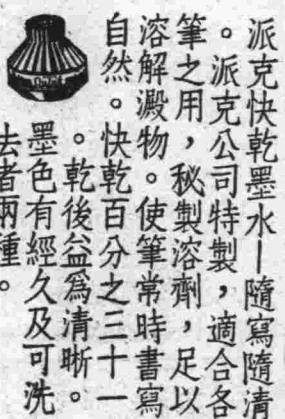 派克快乾墨水—隨寫隨清
。派克公司特製，適合各
筆之用，秘製溶劑，足以
溶解澱物。使筆常時書寫
自然。快乾百分之三十一
。乾後益爲清晰。
墨色有經久及可洗
去者兩種。